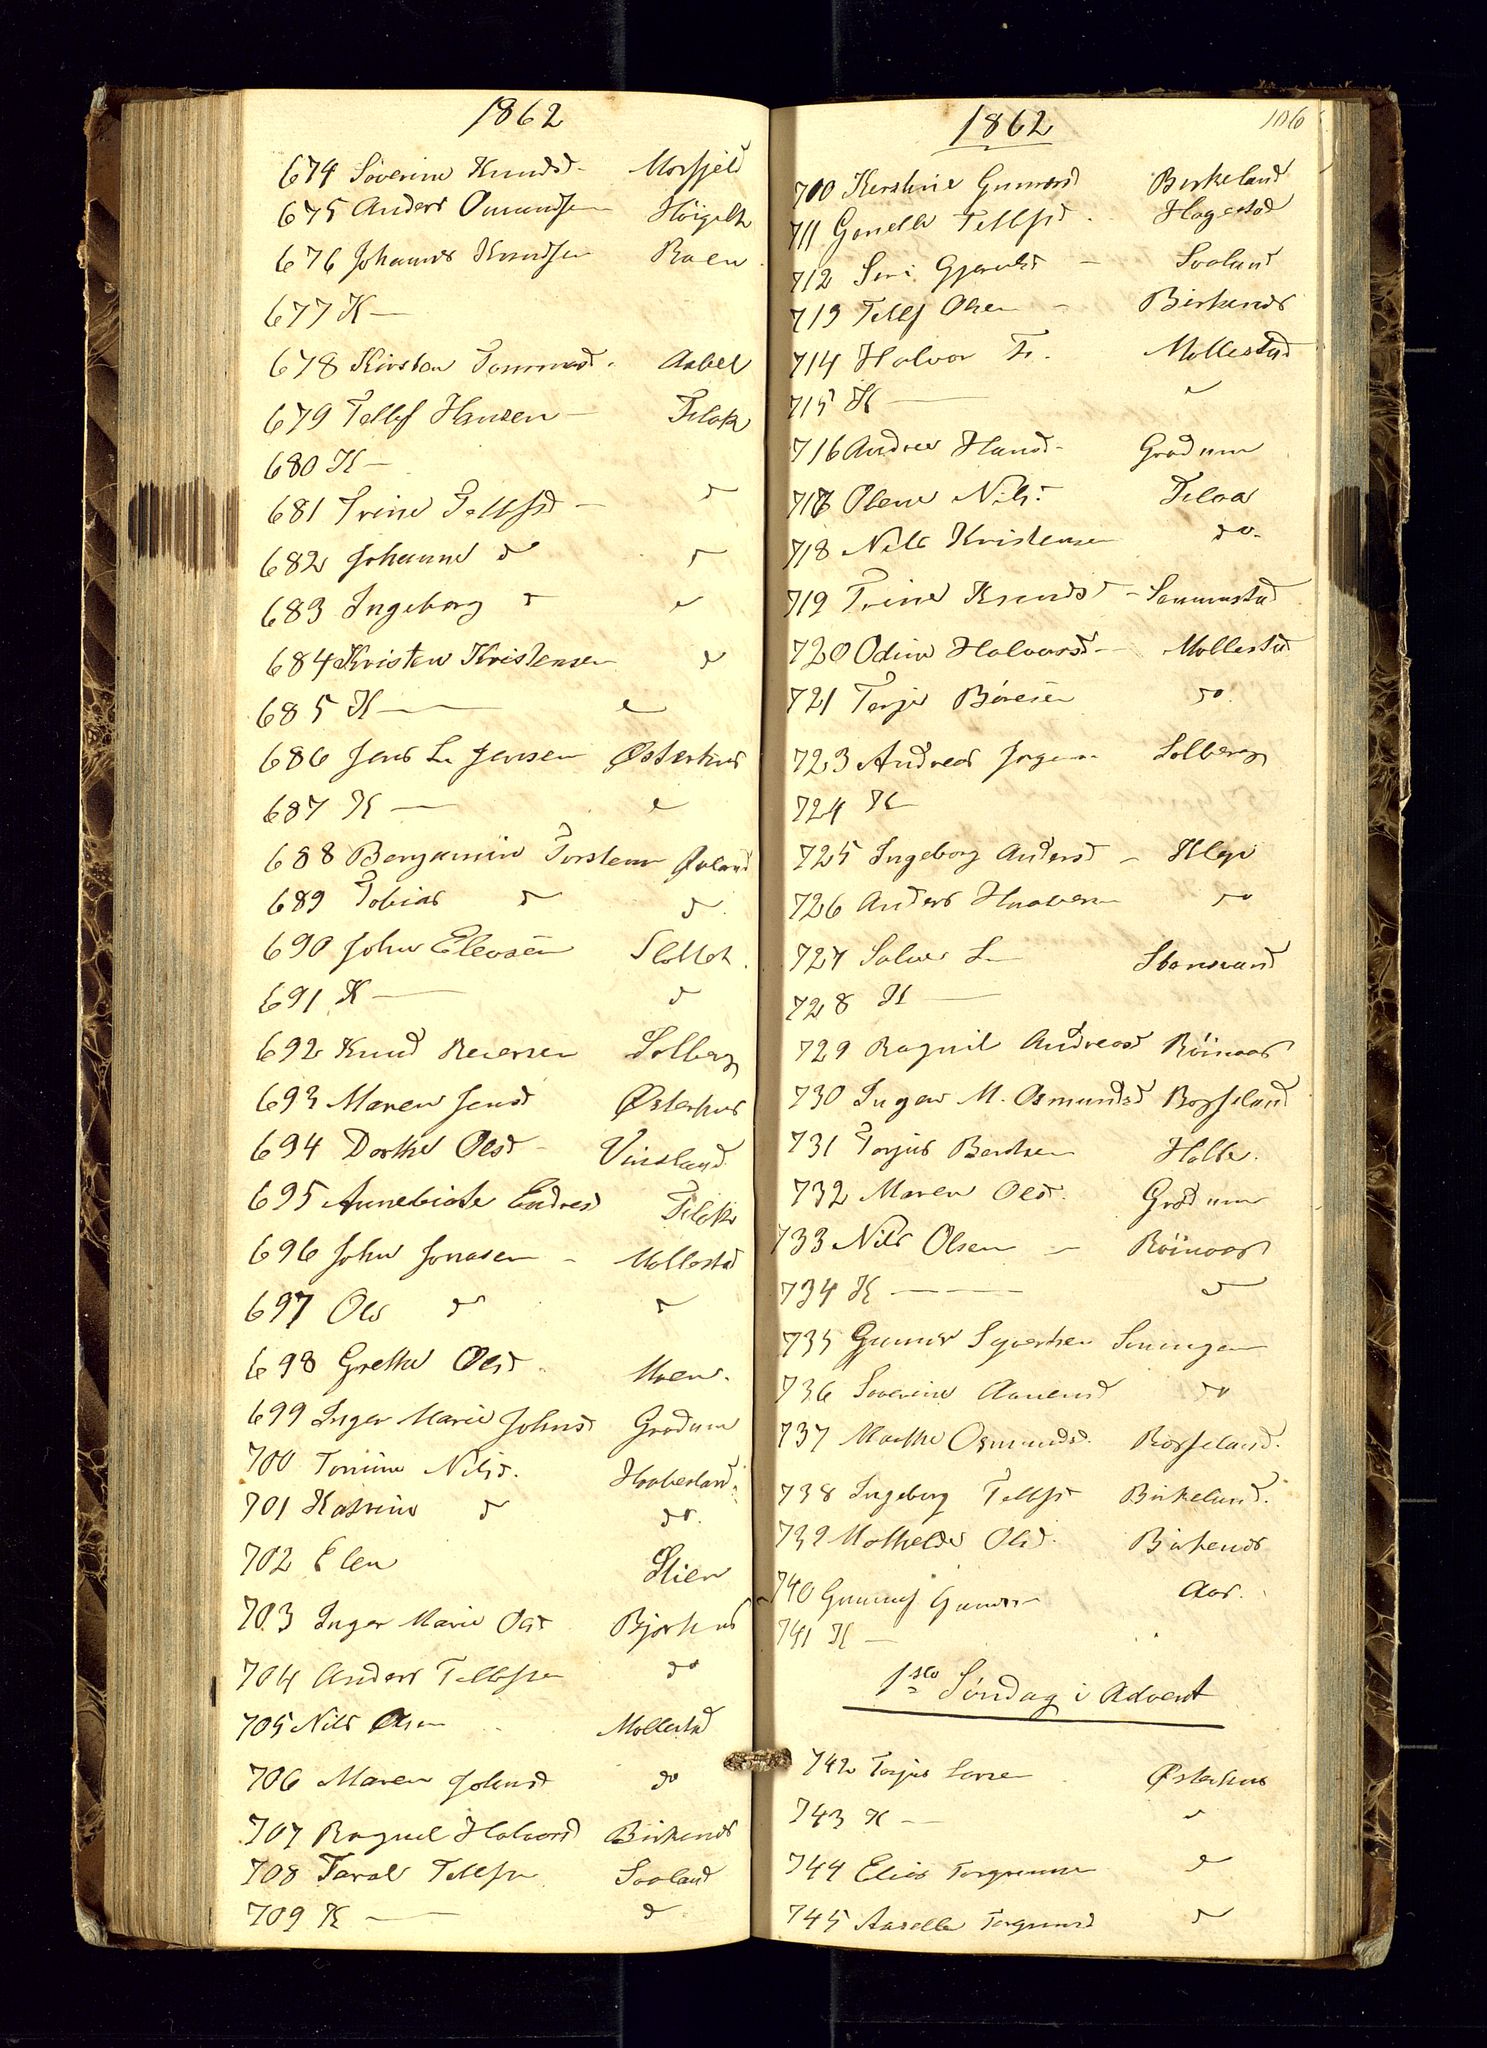 1862
674 Søverine Knudsd. Morfjeld
675 Anders Omundsen
676 Johannes Knudsen Roen
677 K —
678 Kirsten Tommasd. Aabel
679 Tellef Hansen — Flak
680 K —
681 Trine Tellefsd — d
682 Johanne do d
683 Ingeborg d d
684 Kristen Kristensen d
685 K — d
686 Jens L. Jensen Østerhus
687 K — d
688 Benjamin Torstens
689 Tobias d d
690 John Elevsen Slottet
691 K — d
692 Knud Reiersen Solberg
693 Maren Jensd Østerhus
694 Dorthe Olsd Vinsland
695 Annebiate Endresd Flak
696 John Jonasen — Mollestad
697 Ole d d
698 Grethe Olsd Moen.
699 Inger Marie Johnsd Grødum
700 Tomine Nilsd. Haaberland.
701 Katrine d do.
702 Elen Stien
703 Inger Marie Olsd
704 Anders Tellefsen do
705 Nils Olsen Mollestad
706 Maren Johnsd do
707 Ragnil Halvorsd Birkenes
708 Taral Tellefsen Svaland
709 K — d
1862
106
700 Kerstine Gunnersd Birkeland
711 Gunelle Tellefsd. Hagestad
712 Siri Gjerulsd — Svaland
713 Tellf Olsen — Birkenes
714 Halvor Tr. Mollestad
715 K — d
716 Andrea Hansd — Grødum
717 Olene Nilsd. Flaa
718 Nils Kristensen do.
719 Trine Knudsd —
720 Odine Halvorsd — Mollestad
721 Terje Børesen do.
723 Andreas Jørgen Solberg
724 K —
725 Ingeborg Andersd — Klepe
726 Anders Haaversen do
727 Salve L
728 K —
729 Ragnil Andreasd Røinaas
730 Inger M. Osmundsd Rosseland
731 Torjus Berthsen Holte.
732 Maren Olsd. Grødum
733 Nils Olsen — Røinaas
734 K — d
735 Gunner Syvertsen
736 Severine Aanensd do
737 Marthe Osmundsd. Rosseland.
738 Ingeborg Tellefsd Birkeland.
739 Mathelde Olsd. Birkenes
740 Gunnuf Gunders Aas.
741 K —
1ste Søndag i Advent
742 Torjus Larsen Østerhus
743 K — d
744 Elias Torgrimsen d
745 Aaselle Torgrimsd d